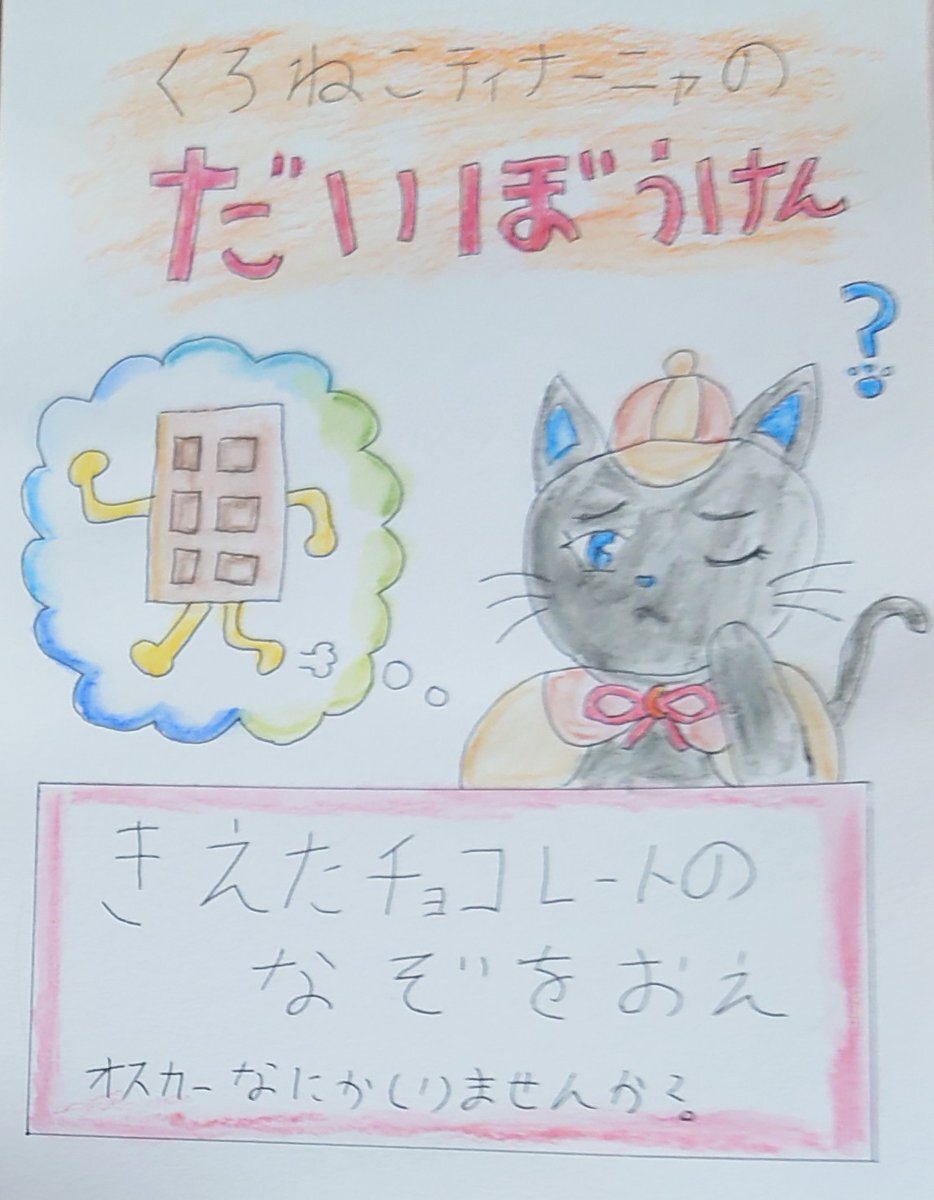 くろねこティナーニャの
だいぼうけん
?
きえたチョコレートの
なぞをおえ
オスカーなにかしりませんか?。